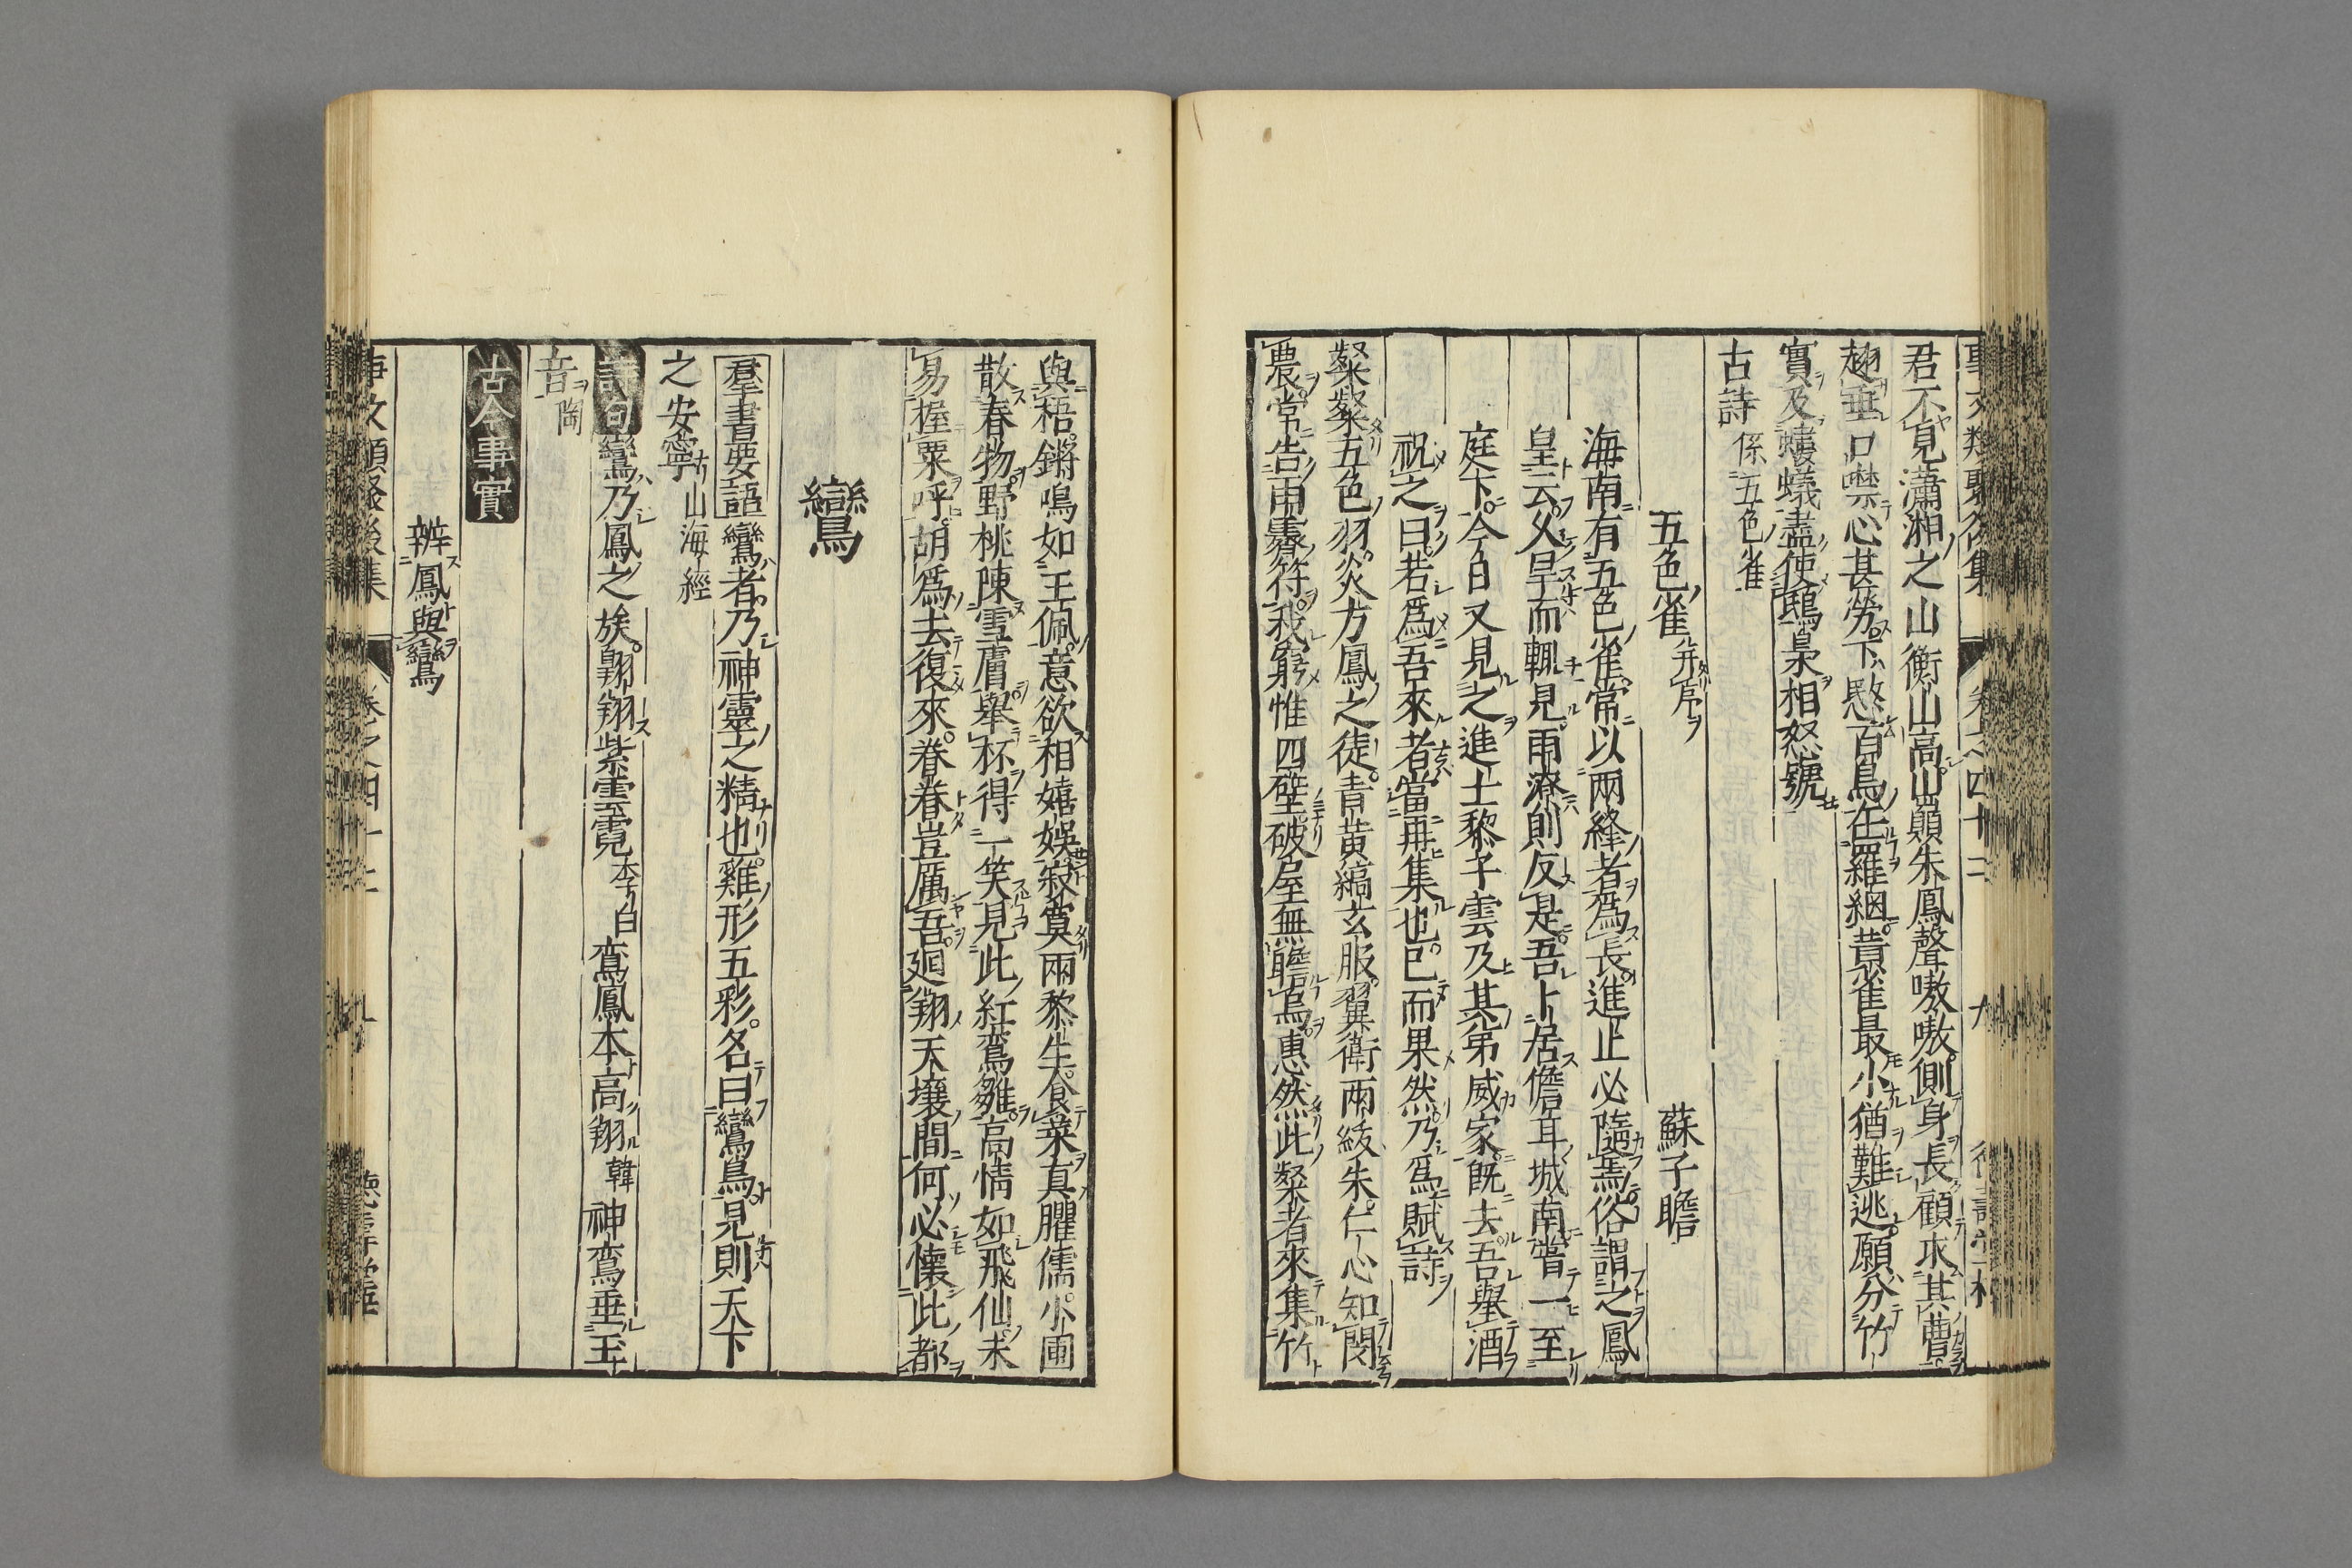 君不見瀟湘之山衡山高山顚朱鳳聲嗷嗷側身長顧求其曹
翅垂口噤心甚勞下愍百鳥在羅網黄雀最小猶難逃願分竹
實及螻蟻盡使鴟梟相怒號
古詩 係五色雀
五色雀并序 蘇子瞻
海南有五色雀常以兩絳者爲長進止必隨焉俗謂之鳳
皇云久旱而輒見雨潦則反是吾卜居儋耳城南嘗一至
庭下今日又見之進士黎子雲及其弟威家既去吾舉酒
祝之曰若爲吾來者當再集也已而果然乃爲賦詩
粲粲五色羽炎方鳳之徒青黄縞玄服翼衛兩紱朱仁心知閔
農常告雨霽符我窮惟四壁破屋無瞻烏惠然此粲者來集竹
與梧鏘鳴如玉佩意欲相嬉娯寂寞兩黎生食菜真臞儒小圃
散春物野桃陳雪膚舉杯得一笑見此紅鸞雛高情如飛仙未
易握粟呼胡爲去復來眷眷豈厲吾廻翔天壤間何必懐此都
鸞
羣書要語 鸞者乃神靈之精也雞形五彩名曰鸞鳥見則天下
之安寧 山海經
詩句 鸞乃鳳之族翺翔紫雲霓 李白 鸞鳳本高翔 韓 神鸞垂玉
音 陶
古今事實
辨鳳與鸞
事文類聚後集 卷之四十二 九